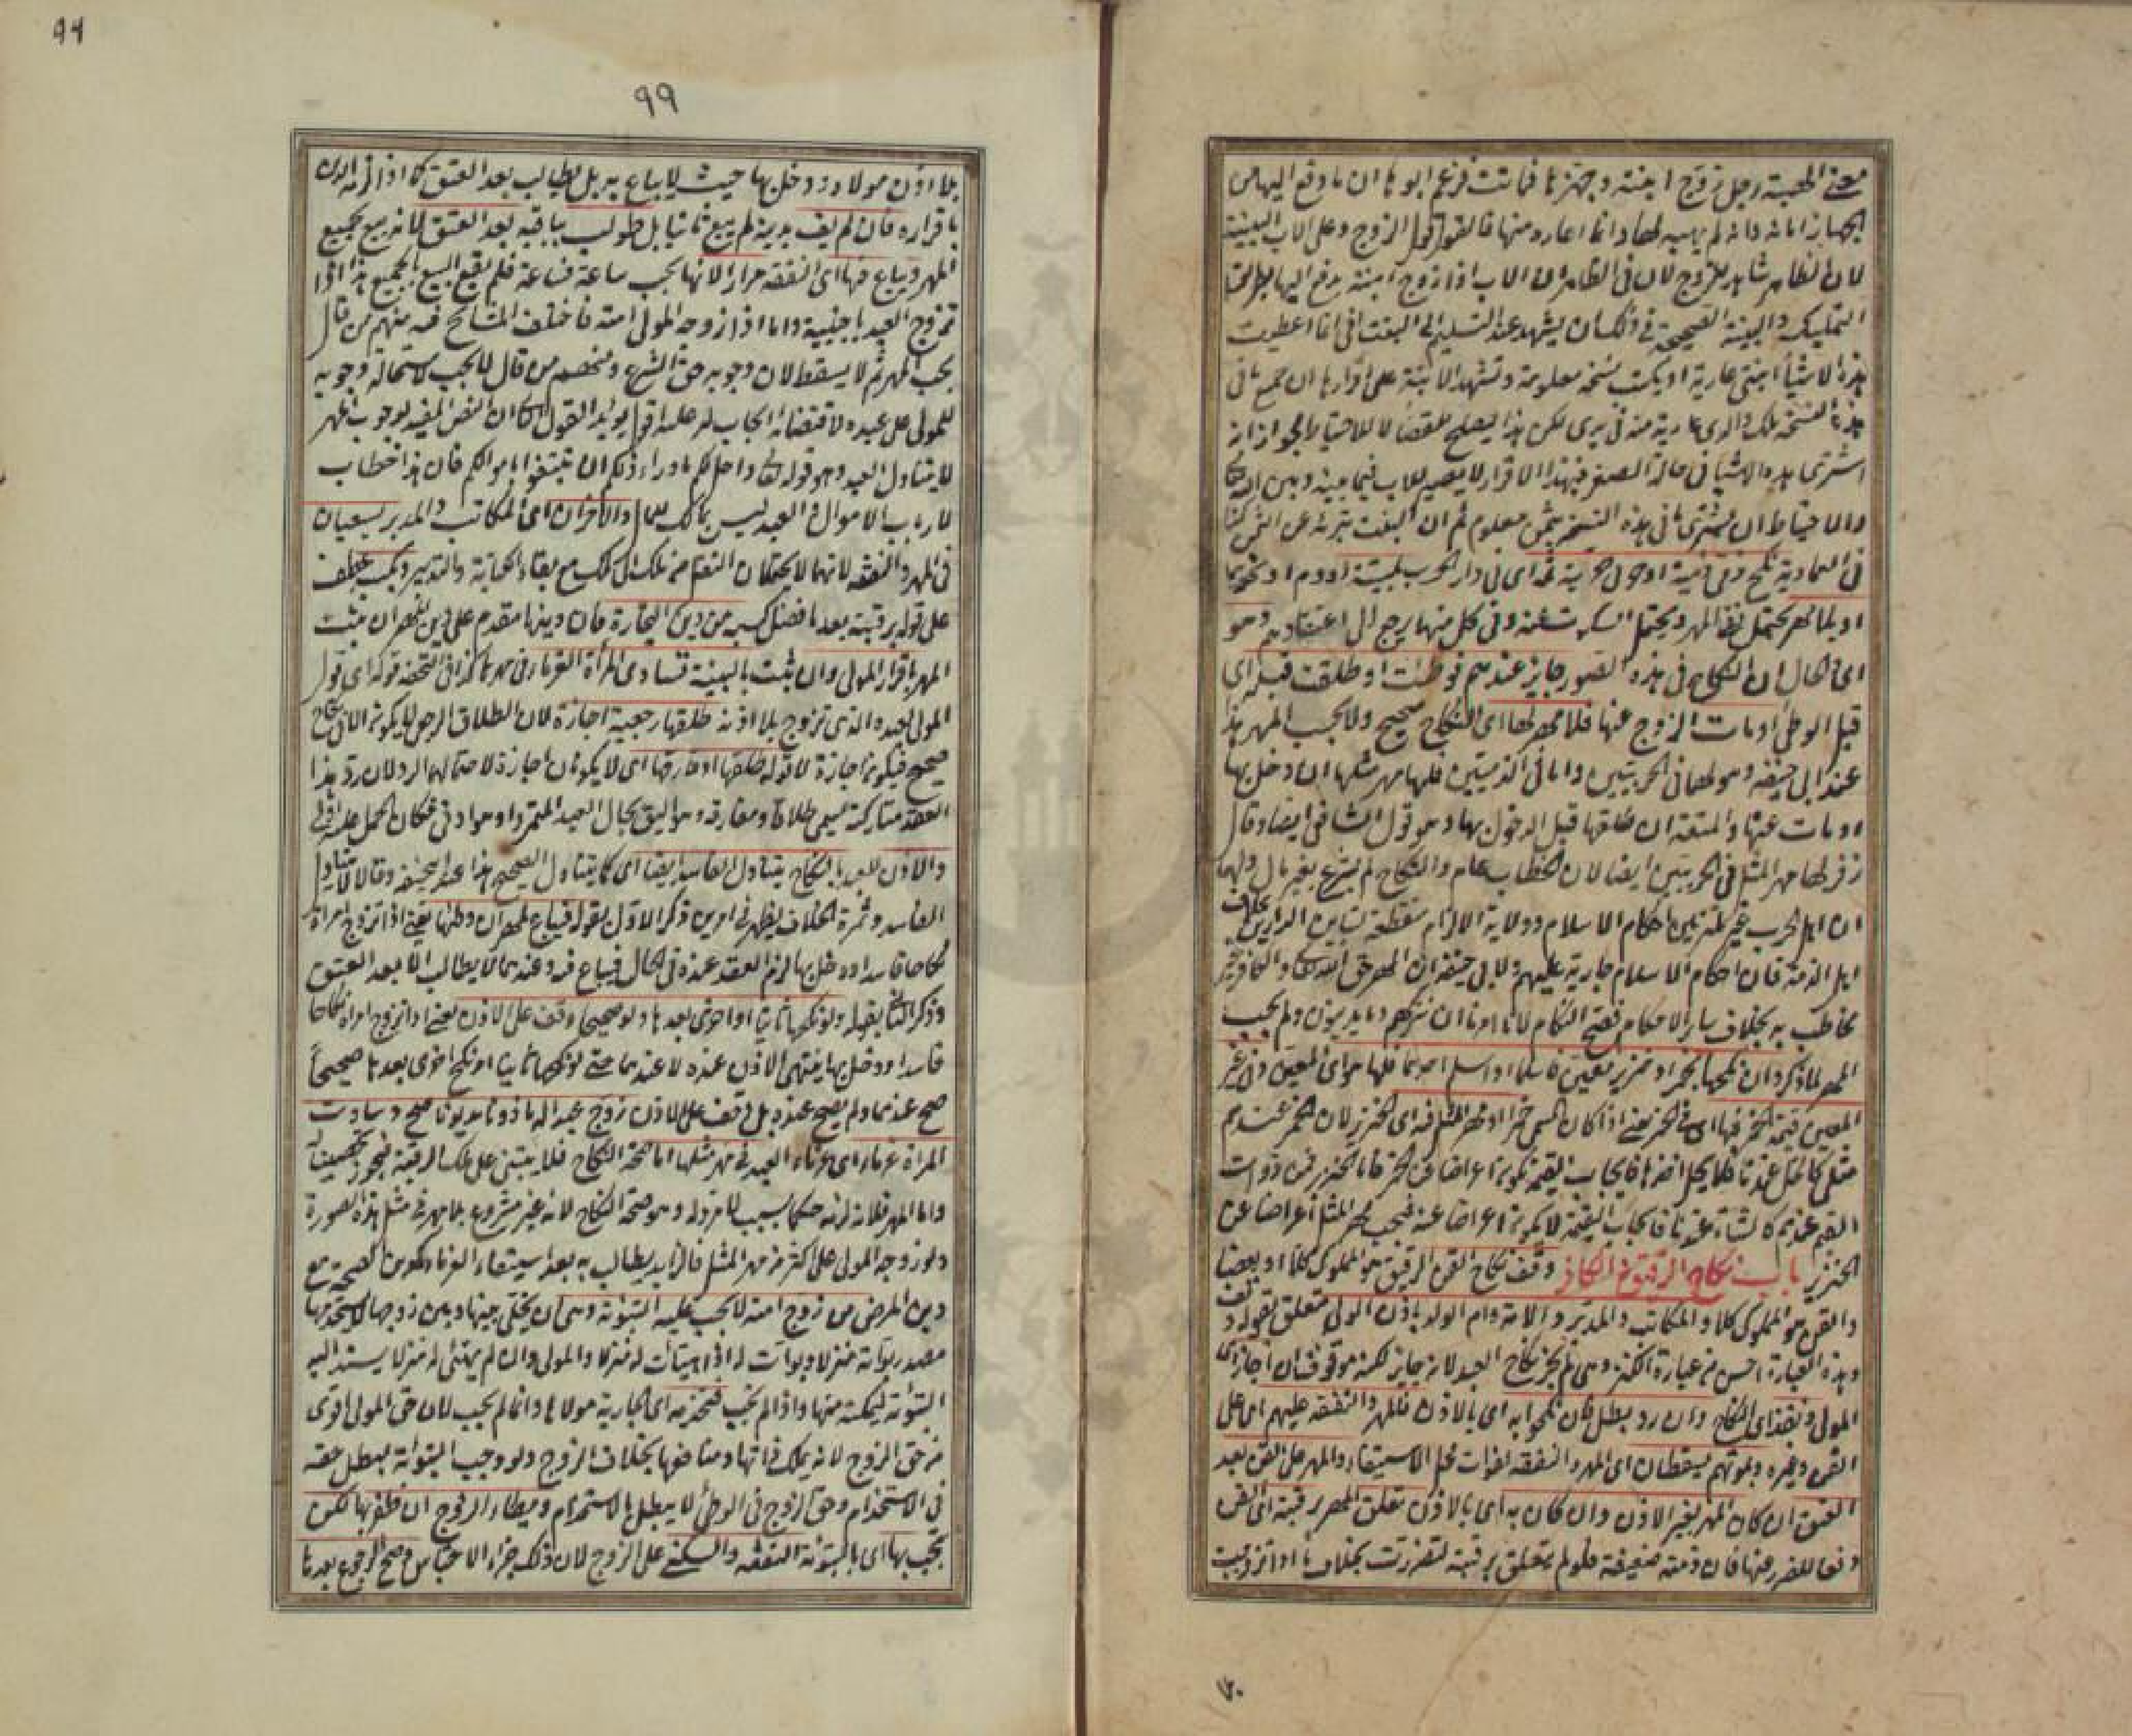 معنى الهبة رجل تزوج ابنته وجهزها فماتت فزعم ابوها ان ما دفع اليها من
الجهاز امانة وانه لم يهبه لها وانما اعاره منها فالقول قول الزوج وعلى الاب البينة
لان الظاهر شاهد للزوج لان في الظاهر ان الاب اذا زوج ابنته يدفع اليها بطريق
التمليك والبينة الصحيحة في ذلك ان يشهد عند التسليم الى البنت اني انما اعطيت
هذه الاشياء ابنتي عارية او يكتب نسخة معلومة وتشهد الابنة على اقرارها ان جميع ما في
هذه النسخة ملك والدي عارية منه في يدي لكن هذا يصلح للقضاء لا للاحتياط لجواز انه
اشترى هذه الاشياء في حالة الصغر فبهذا الاقرار لا يصير للاب فيما بينه وبين الله تعالى
والاحتياط ان يشتري ما في هذه النسخة بثمن معلوم ثم ان البنت تبرئه عن الثمن كذا
في العمادية نكح ذمي ذمية او حربي حربية ثمه اي في دار الحرب بميتة او دم او نحوهما
او بلا مهر يحتمل نفي المهر ويحتمل السكوت عنه وفي كل منهما يرجع الى اعتقادهم وهو
اي الحال ان النكاح في هذه الصور جايز عندهم فوطئت او طلقت قبله اي
قبل الوطئ او مات الزوج عنها فلا مهر لها اي النكاح صحيح ولا يجب المهر هذا
عند ابي حنيفة وهو قولهما في الحربيين واما في الذميين فلها مهر مثلها ان دخل بها
او مات عنها والمتعة ان طلقها قبل الدخول بها وهو قول الشافعي ايضا وقال
زفر لها مهر المثل في الحربيين ايضا لان الخطاب عام والنكاح لم يشرع بغير مال ولهما
ان اهل الحرب غير ملتزمين احكام الاسلام وولاية الالزام منقطعة لتباين الدارين بخلاف
اهل الذمة فان احكام الاسلام جارية عليهم ولابي حنيفة ان المهر حق الله تعالى والكافر غير
مخاطب به بخلاف سائر الاحكام فصح النكاح لانا امرنا ان نتركهم وما يدينون ولم يجب
المهر لما ذكر وان نكحها بخمر او خنزير معين فاسلما او اسلم احدهما فلها هو اي المعين وفي غير
المعين قيمة الخمر فيها اي في الخمر يعني اذا كان المسمى خمرا ومهر المثل فيه اي الخنزير لان الخمر عندهم
مثلي كالخل عندنا فلا يحل اخذها فايجاب القيمة يكون اعراضا عن الخمر فاما الخنزير فمن ذوات
القيم عندهم كالشاة عندنا فايجاب القيمة لا يكون اعراضا عنه فيجب مهر المثل اعراضا عن
الخنزير باب نكاح الرقيق والكافر وقف نكاح القن الرقيق هو المملوك كلا او بعضا
والقن هو المملوك كلا والمكاتب والمدبر والامة وام الولد باذن المولى متعلق بقوله وقف
وهذه العبارة احسن من عبارة الكنز وهي لم يجز نكاح العبد لانه جايز لكنه موقوف ان اجاز اي
المولى نفذ اي النكاح وان رد بطل فان نكحوا به اي بالاذن فالمهر والنفقة عليهم اي على
القن وغيره وبموتهم يسقطان اي المهر والنفقة لفوات محل الاستيفاء والمهر على القن بعد
العتق ان كان المهر بغير الاذن وان كان به اي بالاذن تعلق المهر برقبته اي القن
دفعا للضرر عنها فان ذمته ضعيفة فلو لم يتعلق برقبته لتضررت بخلاف ما اذا تزوجت
بلا اذن مولاه ودخل بها حيث لا يباع به بل يطالب بعد العتق كما اذا لزمه الدين
باقراره فان لم يف بدينه لم يبع ثانيا بل طولب بباقيه بعد العتق لانه بيع بجميع
المهر ويباع فيها اي النفقة مرارا لانها يجب ساعة فساعة فلم يقع البيع بالجميع هذا اذا
تزوج العبد باجنبية واما اذا زوجه المولى امته فاختلف المشايخ فيه منهم من قال
يجب المهر ثم لا يسقط لان وجوبه حق الشرع ومنهم من قال لا يجب لاستحالة وجوبه
للمولى على عبده ولا قتضائه ايجاب له عليه اقول يؤيد القول الثاني ان النص المفيد لوجوب المهر
لا يتناول العبد وهو قوله تعالى واحل لكم ما وراء ذلكم ان تبتغوا باموالكم فان هذا خطاب
لارباب الاموال والعبد ليس بمالك للمال والاخران اي المكاتب والمدبر يسعيان
في المهر والنفقة لانهما لا يحتملان النقل من ملك الى ملك مع بقاء الكتابة والتدبير وكسبه عطف
على قوله برقبته بعد ما فضل كسبه من دين التجارة فان دينها مقدم على دين المهر ان ثبت
المهر باقرار المولى وان ثبت بالبينة تساوى المرأة الغرماء في مهرها كذا في التحفة قوله اي قول
المولى لعبده الذي تزوج بلا اذنه طلقها رجعية اجازة لان الطلاق الرجعي لا يكون الا في نكاح
صحيح فيكون اجازة لا قوله طلقها او فارقها اي لا يكونان اجازة لاحتمالهما الرد لان رد هذا
العقد متاركة يسمى طلاقا ومفارقة وهو اليق بحال العبد المتمرد او هو ادنى فكان الحمل عليه اولى
والاذن للعبد بالنكاح يتناول الفاسد ايضا اي كما يتناول الصحيح هذا عند ابي حنيفة وقالا لا يتناول
الفاسد وثمرة الخلاف يظهر في امرين ذكر الاول بقوله فيباع لمهر ان وطئها يعني اذا تزوج امرأة
نكاحا فاسدا ودخل بها لزم العقد عنده في الحال فيباع فيه وعندهما لا يطالب الا بعد العتق
وذكر الثاني بقوله ولو نكحها ثانيا او اخرى بعدها ولو صحيحا وقف على الاذن يعني اذا تزوج امرأة نكاحا
فاسدا ودخل بها ينتهي الاذن عنده لا عندهما حتى لو نكحها ثانيا او نكح اخرى بعدها صحيحا
صح عندهما ولم يصح عنده بل وقف على الاذن زوج عبدا له ماذونا مديونا صح وساوت
المرأة غرماءه اي غرماء العبد في مهر مثلها اما صحة النكاح فلا يبتنى على ملك الرقبة فيجوز تحصينا له
واما المهر فلانه لزمه حكما بسبب لا مرد له وهو صحة النكاح لانه غير مشروع بلا مهر في مثل هذه الصورة
ولو زوجه المولى على اكثر من مهر المثل فالزايد يطالب به بعد استيفاء الغرماء كدين الصحة مع
دين المرض من زوج امته لا يجب عليه التبوئة وهي ان يخلي بينها وبين زوجها ولا يستخدمها
مصدر بوأته منزلا وبوأت له اذا هيئات له منزلا والمولى وان لم يهيئ له منزلا يسند اليه
التبوئة لتمكنه منها واذا لم يجب فتخدمه اي الجارية مولاها وانما لم يجب لان حق المولى اقوى
من حق الزوج لانه يملك ذاتها ومنافعها بخلاف الزوج ولو وجب التبوئة لبطل حقه
في الاستخدام وحق الزوج في الوطئ لا يبطل بالاستخدام ويطاء الزوج ان ظفر بها لكن
يجب بها اي بالتبوئة النفقة والسكنى على الزوج لان ذلك جزاء الاحتباس وصح الرجوع بعدها